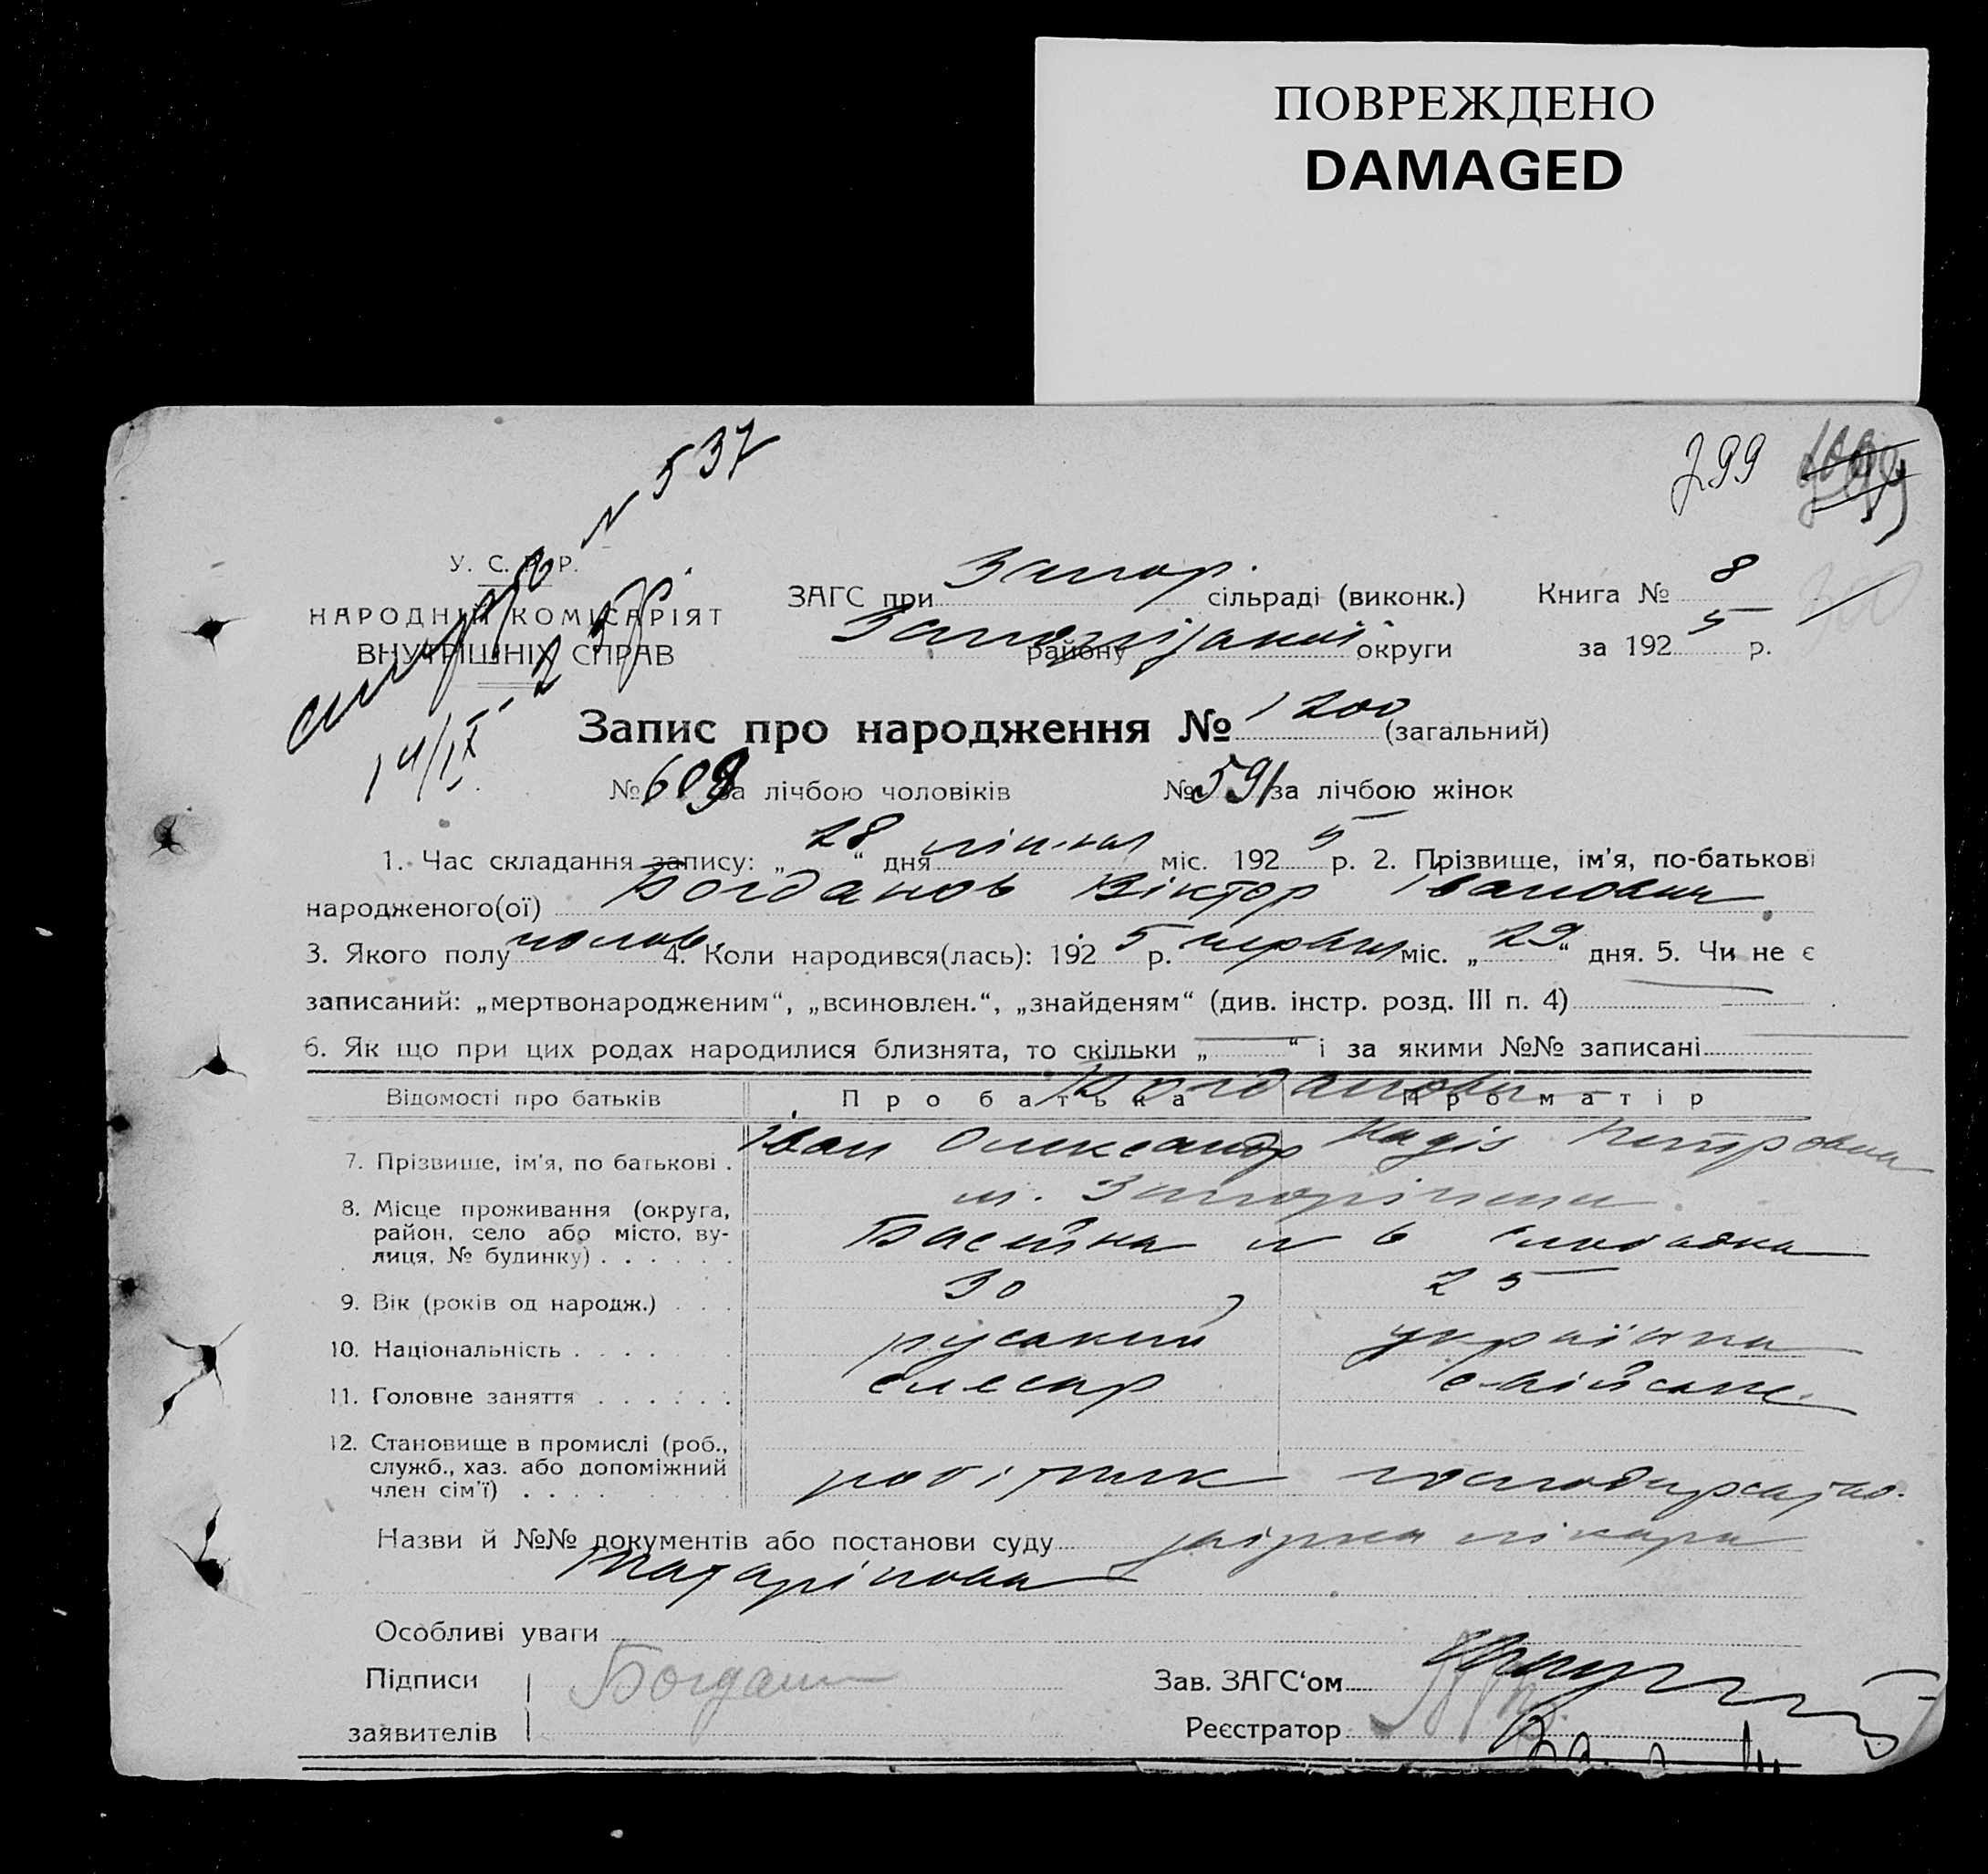 ПОВРЕЖДЕНО
DAMAGED
№ 537
299
У. С. Р. Р.
НАРОДНІЙ КОМІСАРІЯТ
ВНУТРІШНІХ СПРАВ
14/IX
ЗАГС при Запор. сільраді (виконк.) Книга № 8
району Запоріжської округи за 1925 р.
300
Запис про народження № 1200 (загальний)
№ 609 за лічбою чоловіків № 591 за лічбою жінок
1. Час складання запису: „28“ дня липня міс. 1925 р. 2. Прізвище, ім’я, по-батькові
народженого(ої) Богданов Віктор Іванович
3. Якого полу чолов. 4. Коли народився(лась): 1925 р. червня міс. „29“ дня. 5. Чи не є
записаний: „мертвонародженим“, „всиновлен.“, „знайденям“ (див. інстр. розд. III п. 4)
6. Як що при цих родах народилися близнята, то скільки „ “ і за якими №№ записані
Відомості про батьків Про батька Про матір
Богданови
7. Прізвище, ім’я, по батькові . Іван Олександр Надія Петровна
8. Місце проживання (округа, район, село або місто, вулиця, № будинку) . . . . . . м. Запоріжжя
№ 6
9. Вік (років од народж.) . . . 30 25
10. Національність . . . . . . . руський українка
11. Головне заняття . . . . . . слесар хатне
12. Становище в промислі (роб., служб., хаз. або допоміжний член сім’ї) . . . . робітник
Назви й №№ документів або постанови суду довідка лікаря
Особливі уваги
Підписи Богданов Зав. ЗАГС‘ом
заявителів Реєстратор